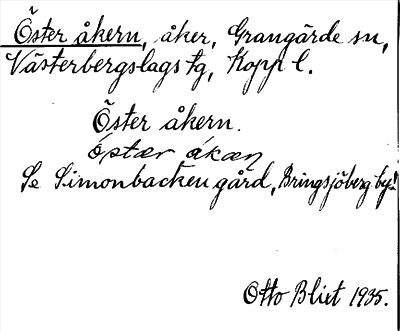 Öster åkern, åker, Grangärde sn,
Västerbergslags tg, Kopp l.
Öster åkern.
óstær åkæṇ
Se Simonbacken gård, Bringsjöberg by!
Otto Blixt 1935.